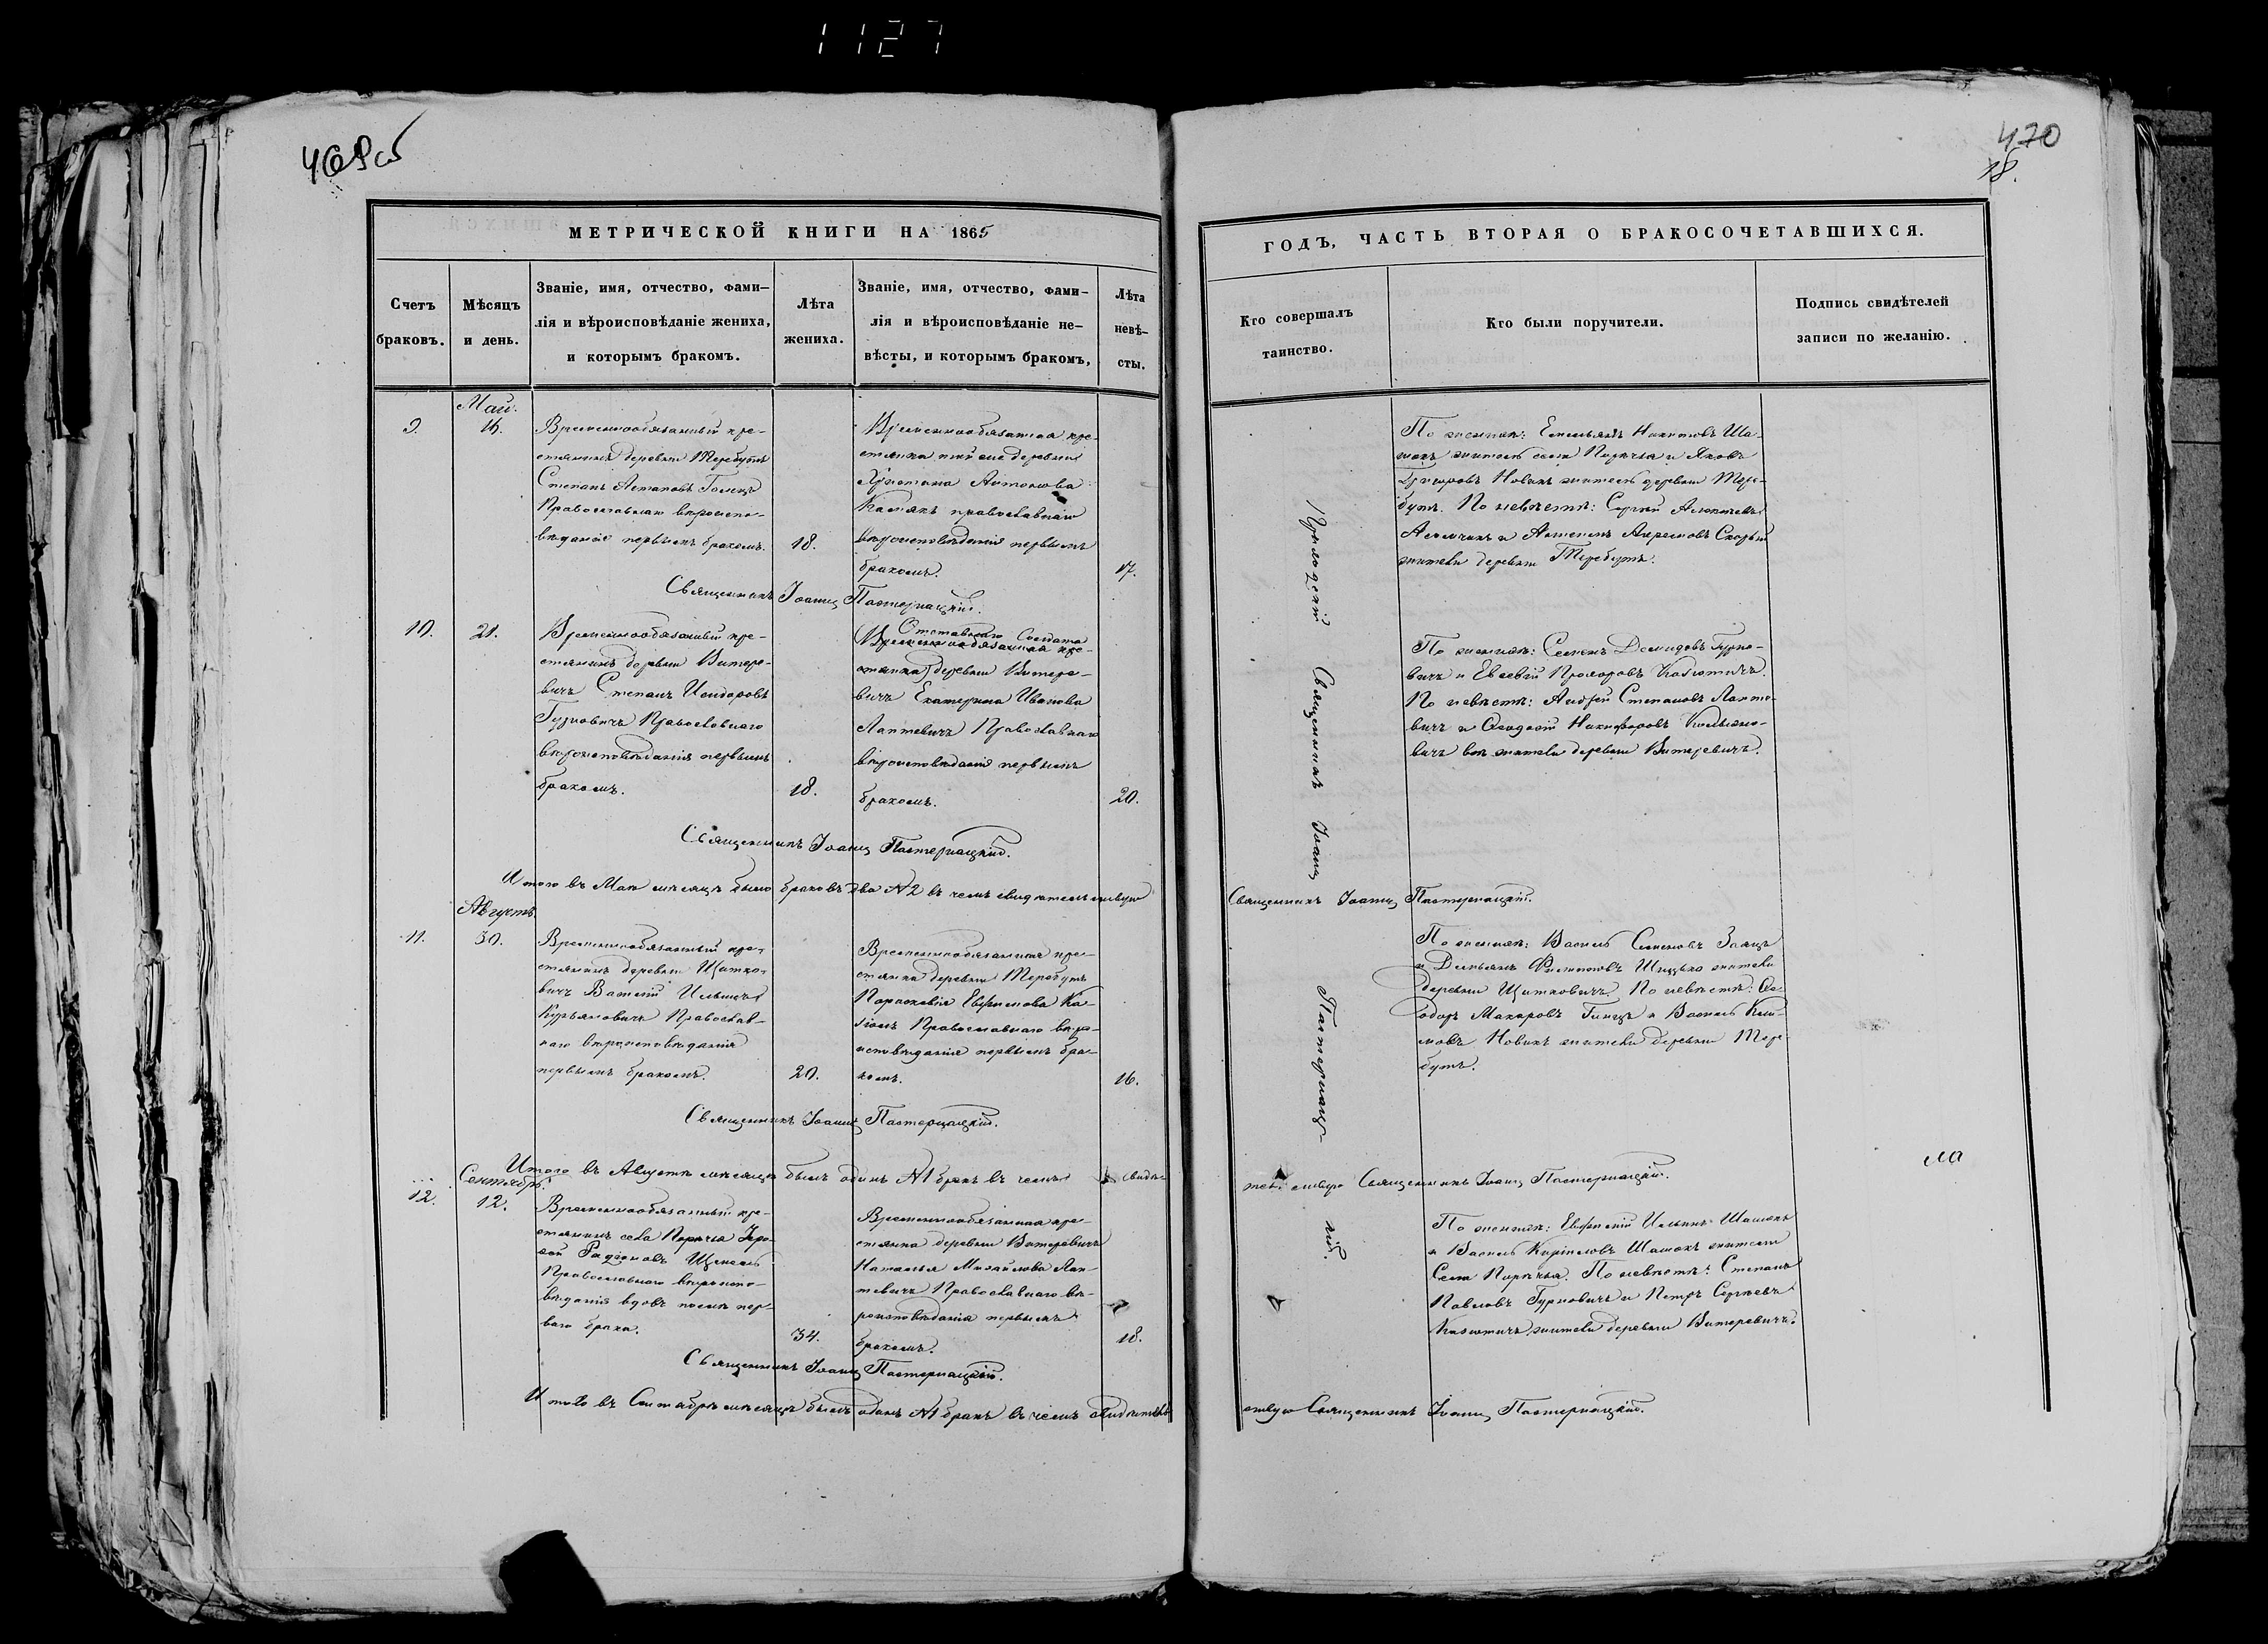 1127
469об
470
18.
МЕТРИЧЕСКОЙ КНИГИ НА 1865
ГОДЪ, ЧАСТЬ ВТОРАЯ О БРАКОСОЧЕТАВШИХСЯ.
Счетъ
браковъ.
Мѣсяцъ
и день.
Званіе, имя, отчество, фами-
лія и вѣроисповѣданіе жениха,
и которымъ бракомъ.
Лѣта
жениха.
Званіе, имя, отчество, фами-
лія и вѣроисповѣданіе не-
вѣсты, и которымъ бракомъ,
Лѣта
невѣ-
сты.
Кто совершалъ
таинство.
Кто были поручители.
Подпись свидѣтелей
записи по желанію.
Май.
9.
Временнообязанный кре-
стьянинъ деревни Теребутъ
Степанъ Астаповъ
Православнаго вѣроиспо-
вѣданія первымъ бракомъ.
18.
Временнообязанная кре-
стьянка той же деревни
Христина Антонова
православнаго
вѣроисповѣданія первымъ
бракомъ.
17.
Священникъ Іоаннъ Пастернацкій.
По женихѣ: Емельянъ Никитовъ Ша-
житель села Порѣчья и Яковъ
Григоровъ Новикъ житель деревни Тере-
бутъ. По невѣстѣ: Сергей
жители деревни Теребутъ.
10.
21.
Временнообязанный кре-
стьянинъ деревни Витере-
вичъ Степанъ Исидоровъ
Гурновичъ Православнаго
вѣроисповѣданія первымъ
бракомъ.
18.
Отставнаго Солдата
Временнообязанная кре-
стьянка деревни Витере-
вичъ Екатерина Иванова
Лаптевичъ Православнаго
вѣроисповѣданія первымъ
бракомъ.
20.
Священникъ Іоаннъ Пастернацкій.
По женихѣ: Семенъ Демидовъ Гурно-
вичъ и Евсевій Прохоровъ Казютичъ.
По невѣстѣ: Андрей Степановъ Лапте-
вичъ и Ѳеодосій Никифоровъ
вичъ всѣ жители деревни Витеревичъ.
Итого въ Маѣ мѣсяцѣ было браковъ два №2 въ чемъ свидѣтельствую
Священникъ Іоаннъ Пастернацкій.
Августъ.
11.
30.
Временнообязанный кре-
стьянинъ деревни Щитко-
вичъ Ватслій Ильичъ
Курьяновичъ Православ-
наго вѣроисповѣданія
первымъ бракомъ.
20.
Временнообязанная кре-
стьянка деревни Теребутъ
Параскевія Евфимова Ка-
Православнаго вѣро-
исповѣданія первымъ бра-
комъ.
16.
Священникъ Іоаннъ Пастернацкій.
По женихѣ: Василь Семеновъ Заяцъ
и Демьянъ Филиповъ жители
деревни Щитковичъ. По невѣстѣ: Ѳе-
одоръ Макаровъ и Василь Кли-
мовъ Новикъ жители деревни Тере-
бутъ.
Итого въ Августѣ мѣсяцѣ былъ одинъ №1 бракъ въ чемъ свидѣ-
тельствую Священникъ Іоаннъ Пастернацкій.
Сентябрь.
12.
12.
Временнообязанный кре-
стьянинъ села Порѣчья
Православнаго вѣроиспо-
вѣданія вдовъ послѣ пер-
ваго брака.
34.
Временнообязанная кре-
стьянка деревни Витеревичъ
Наталья Михайлова Лап-
тевичъ Православнаго вѣ-
роисповѣданія первымъ
бракомъ.
18.
Священникъ Іоаннъ Пастернацкій.
По женихѣ: Евфимій Ильинъ
и Василь Кириловъ жители
Села Порѣчья. По невѣстѣ: Степанъ
Павловъ Гурновичъ и Петръ Сергѣевъ
Казютичъ жители деревни Витеревичъ.
Итого въ Сентябрѣ мѣсяцѣ былъ одинъ №1 бракъ въ чемъ свидѣтель-
ствую Священникъ Іоаннъ Пастернацкій.
Приходскій Священникъ Іоаннъ Пастернацкій.